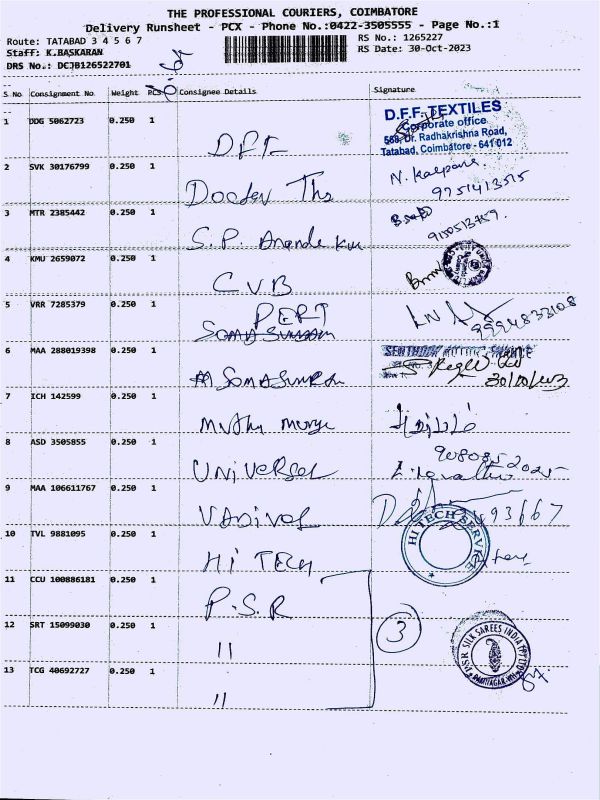 THE PROFESSIONAL COURIERS, COIMBATORE
Delivery Runsheet - PCX - Phone No.:0422-3505555 - Page No.:1
Route: TATABAD 3 4 5 6 7
RS No.: 1265227
Staff: K.BASKARAN
RS Date: 30-Oct-2023
DRS No.: DCJB126522701
S No Consignment No Weight PCS Consignee Details Signature
1 DDG 5062723 0.250 1 D.F.F
D.F.F. TEXTILES
Corporate office
568, Dr. Radhakrishna Road,
Tatabad, Coimbatore - 641 012
2 SVK 30176799 0.250 1 N. Kalpana
9751413515
3 MTR 2385442 0.250 1 S.P.
4 KMU 2659072 0.250 1 CVB
5 VRR 7285379 0.250 1 PERT
9994833108
6 MAA 288019398 0.250 1
7 ICH 142599 0.250 1
8 ASD 3505855 0.250 1 Universal
9080852025
9 MAA 106611767 0.250 1 VADIVEL
93667
10 TVL 9881095 0.250 1 Hi TECH
HI TECH SERVICE
11 CCU 100886181 0.250 1 P.S.R
12 SRT 15099030 0.250 1 "
3
P.S.R SILK SAREES INDIA (P) LTD
13 TCG 40692727 0.250 1 "